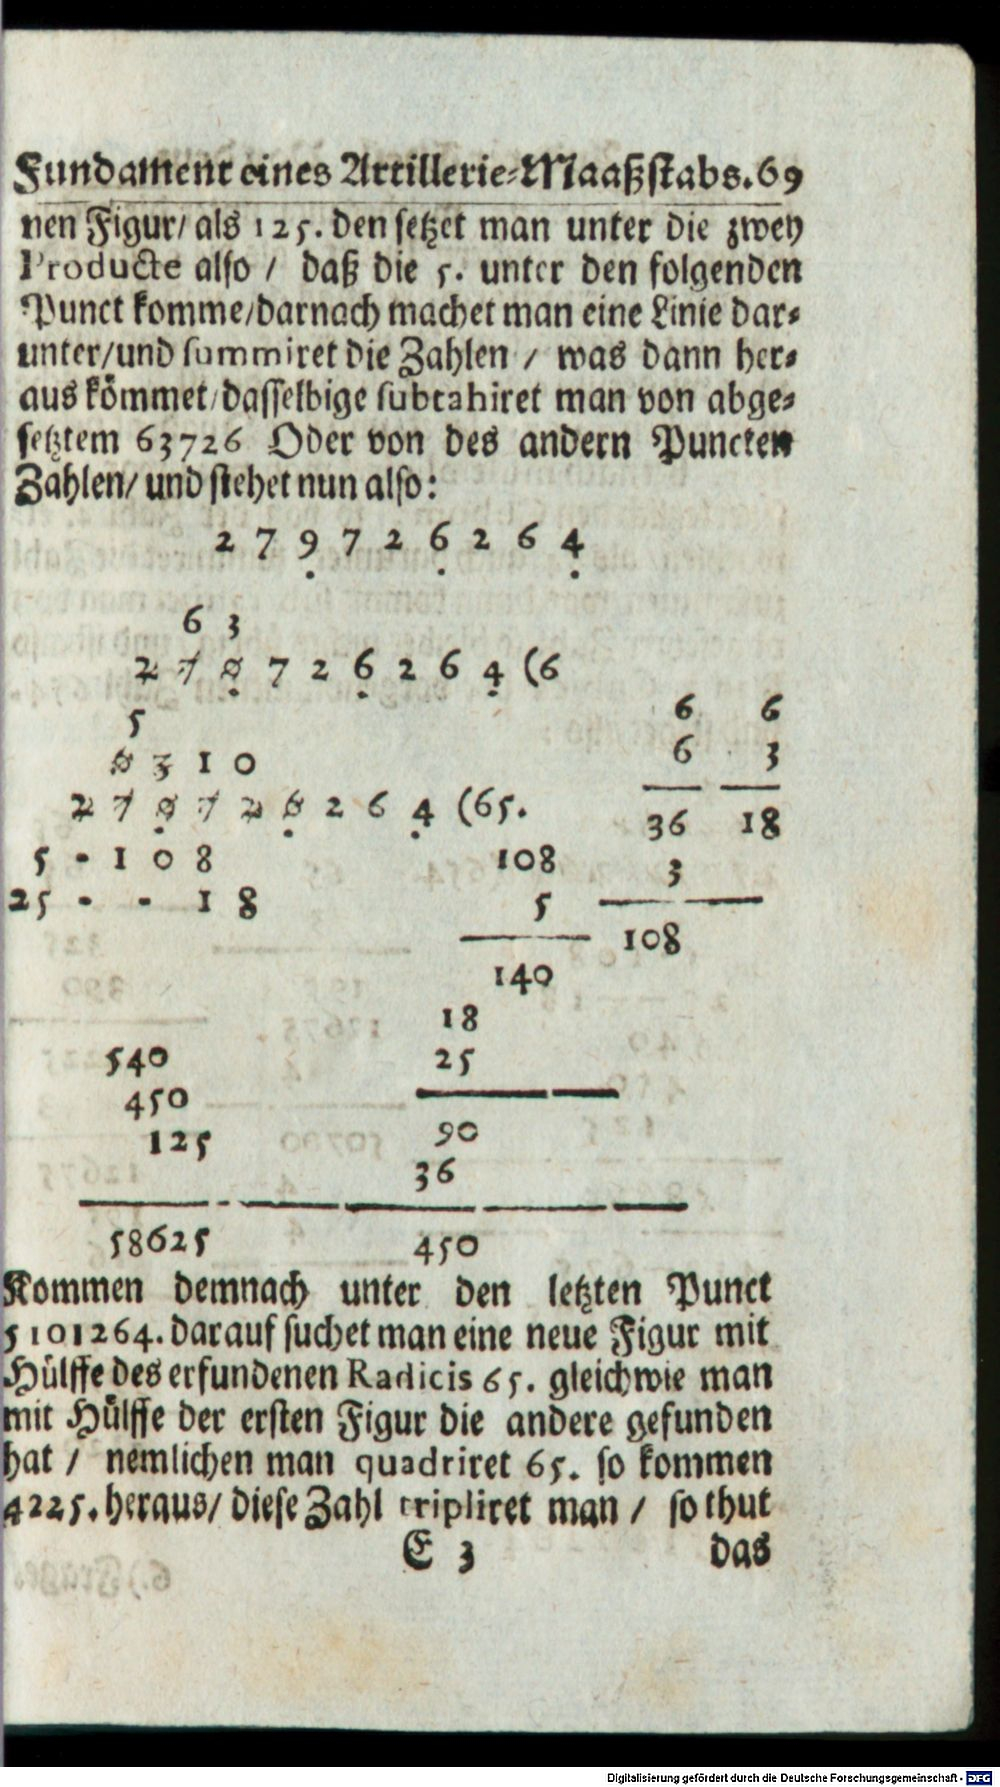 Fundament eines Artillerie-Maaßstabs. 69
nen Figur/ als 125. den setzet man unter die zwey
Producte also / daß die 5. unter den folgenden
Punct komme/darnach machet man eine Linie dar-
unter/und summiret die Zahlen / was dann her-
aus kömmet/dasselbige subtahiret man von abge-
setztem 63726 Oder von des andern Puncten
Zahlen/ und stehet nun also:
2 7 9 7 2 6 2 6 4
6 3
2 7 9 7 2 6 2 6 4 (6
5
6 6
9 3 1 0
6 3
2 7 9 7 2 6 2 6 4 (65.
36 18
5 - 1 0 8
108
3
25 - - 1 8
5
108
140
18
540
25
450
125
90
36
58625
450
Kommen demnach unter den letzten Punct
5101264. darauf suchet man eine neue Figur mit
Hülffe des erfundenen Radicis 65. gleichwie man
mit Hülffe der ersten Figur die andere gefunden
hat / nemlichen man quadriret 65. so kommen
4225. heraus/ diese Zahl tripliret man / so thut
E 3 das
Digitalisierung gefördert durch die Deutsche Forschungsgemeinschaft - DFG